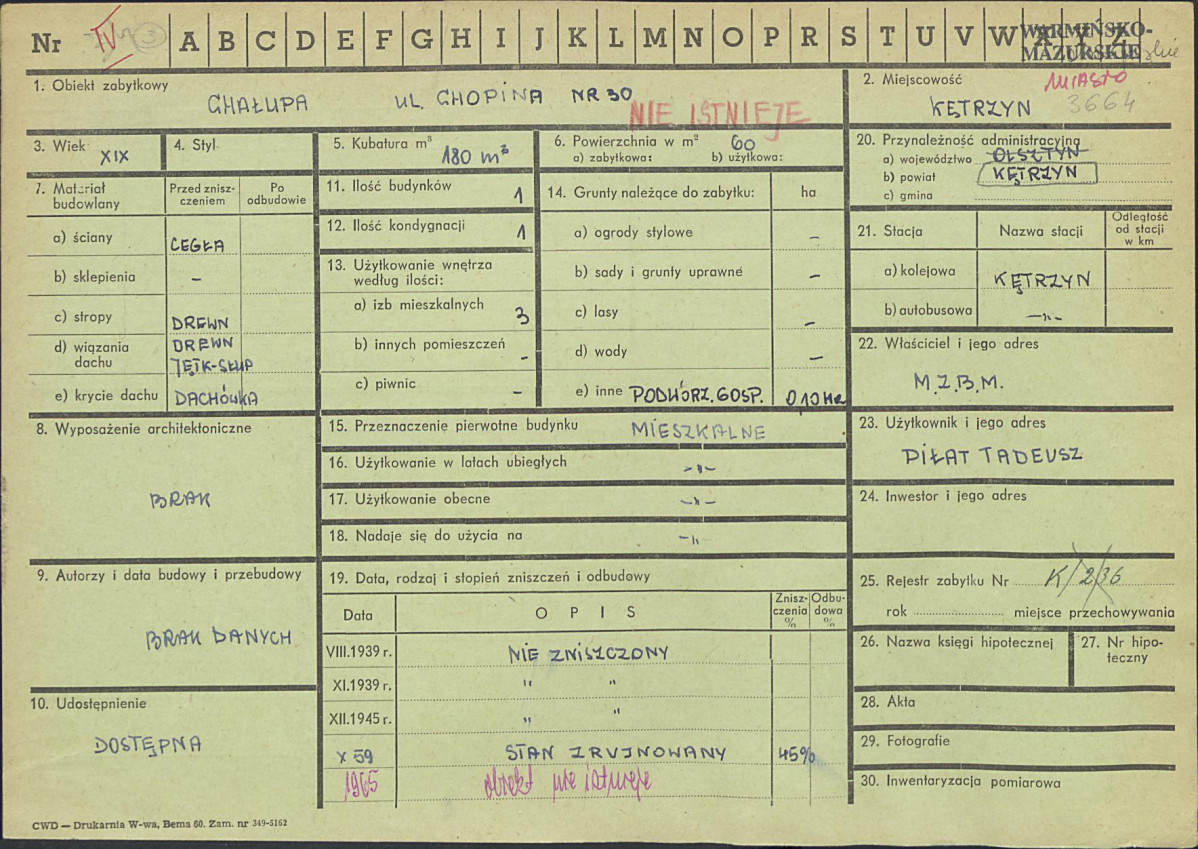 Nr IV 3 A B C D E F G H I J K L M N O P R S T U V W X Y Z
WARMIŃSKO-
MAZURSKIE
1. Obiekt zabytkowy
CHAŁUPA UL. CHOPINA NR 30
NIE ISTNIEJE
2. Miejscowość
MIASTO
KĘTRZYN 3664
3. Wiek XIX
4. Styl
5. Kubatura m³ 180 m³
6. Powierzchnia w m² 60
a) zabytkowa: b) użytkowa:
20. Przynależność administracyjna
a) województwo OLSZTYN
b) powiat KĘTRZYN
c) gmina
7. Materiał budowlany
Przed zniszczeniem
Po odbudowie
a) ściany CEGŁA
b) sklepienia –
c) stropy DREWN
d) wiązania dachu DREWN JĘTK-SŁUP
e) krycie dachu DACHÓWKA
11. Ilość budynków 1
12. Ilość kondygnacji 1
13. Użytkowanie wnętrza według ilości:
a) izb mieszkalnych 3
b) innych pomieszczeń -
c) piwnic –
14. Grunty należące do zabytku: ha
a) ogrody stylowe –
b) sady i grunty uprawne –
c) lasy –
d) wody –
e) inne PODWÓRZ. GOSP. 0,10 Ha
21. Stacja Nazwa stacji Odległość od stacji w km
a) kolejowa KĘTRZYN
b) autobusowa –"–
22. Właściciel i jego adres
M.Z.B.M.
8. Wyposażenie architektoniczne
BRAK
15. Przeznaczenie pierwotne budynku MIESZKALNE
16. Użytkowanie w latach ubiegłych –"–
17. Użytkowanie obecne –"–
18. Nadaje się do użycia na –"–
23. Użytkownik i jego adres
PIŁAT TADEUSZ
24. Inwestor i jego adres
9. Autorzy i data budowy i przebudowy
BRAK DANYCH
19. Data, rodzaj i stopień zniszczeń i odbudowy
Data OPIS Zniszczenia % Odbudowa %
VIII.1939 r. NIE ZNISZCZONY
XI.1939 r. " "
XII.1945 r. " "
X 59 STAN ZRUJNOWANY 45%
1965 obiekt nie istnieje
25. Rejestr zabytku Nr K/2/36
rok miejsce przechowywania
26. Nazwa księgi hipotecznej
27. Nr hipoteczny
10. Udostępnienie
DOSTĘPNA
28. Akta
29. Fotografie
30. Inwentaryzacja pomiarowa
CWD — Drukarnia W-wa, Bema 60. Zam. nr 349-5162